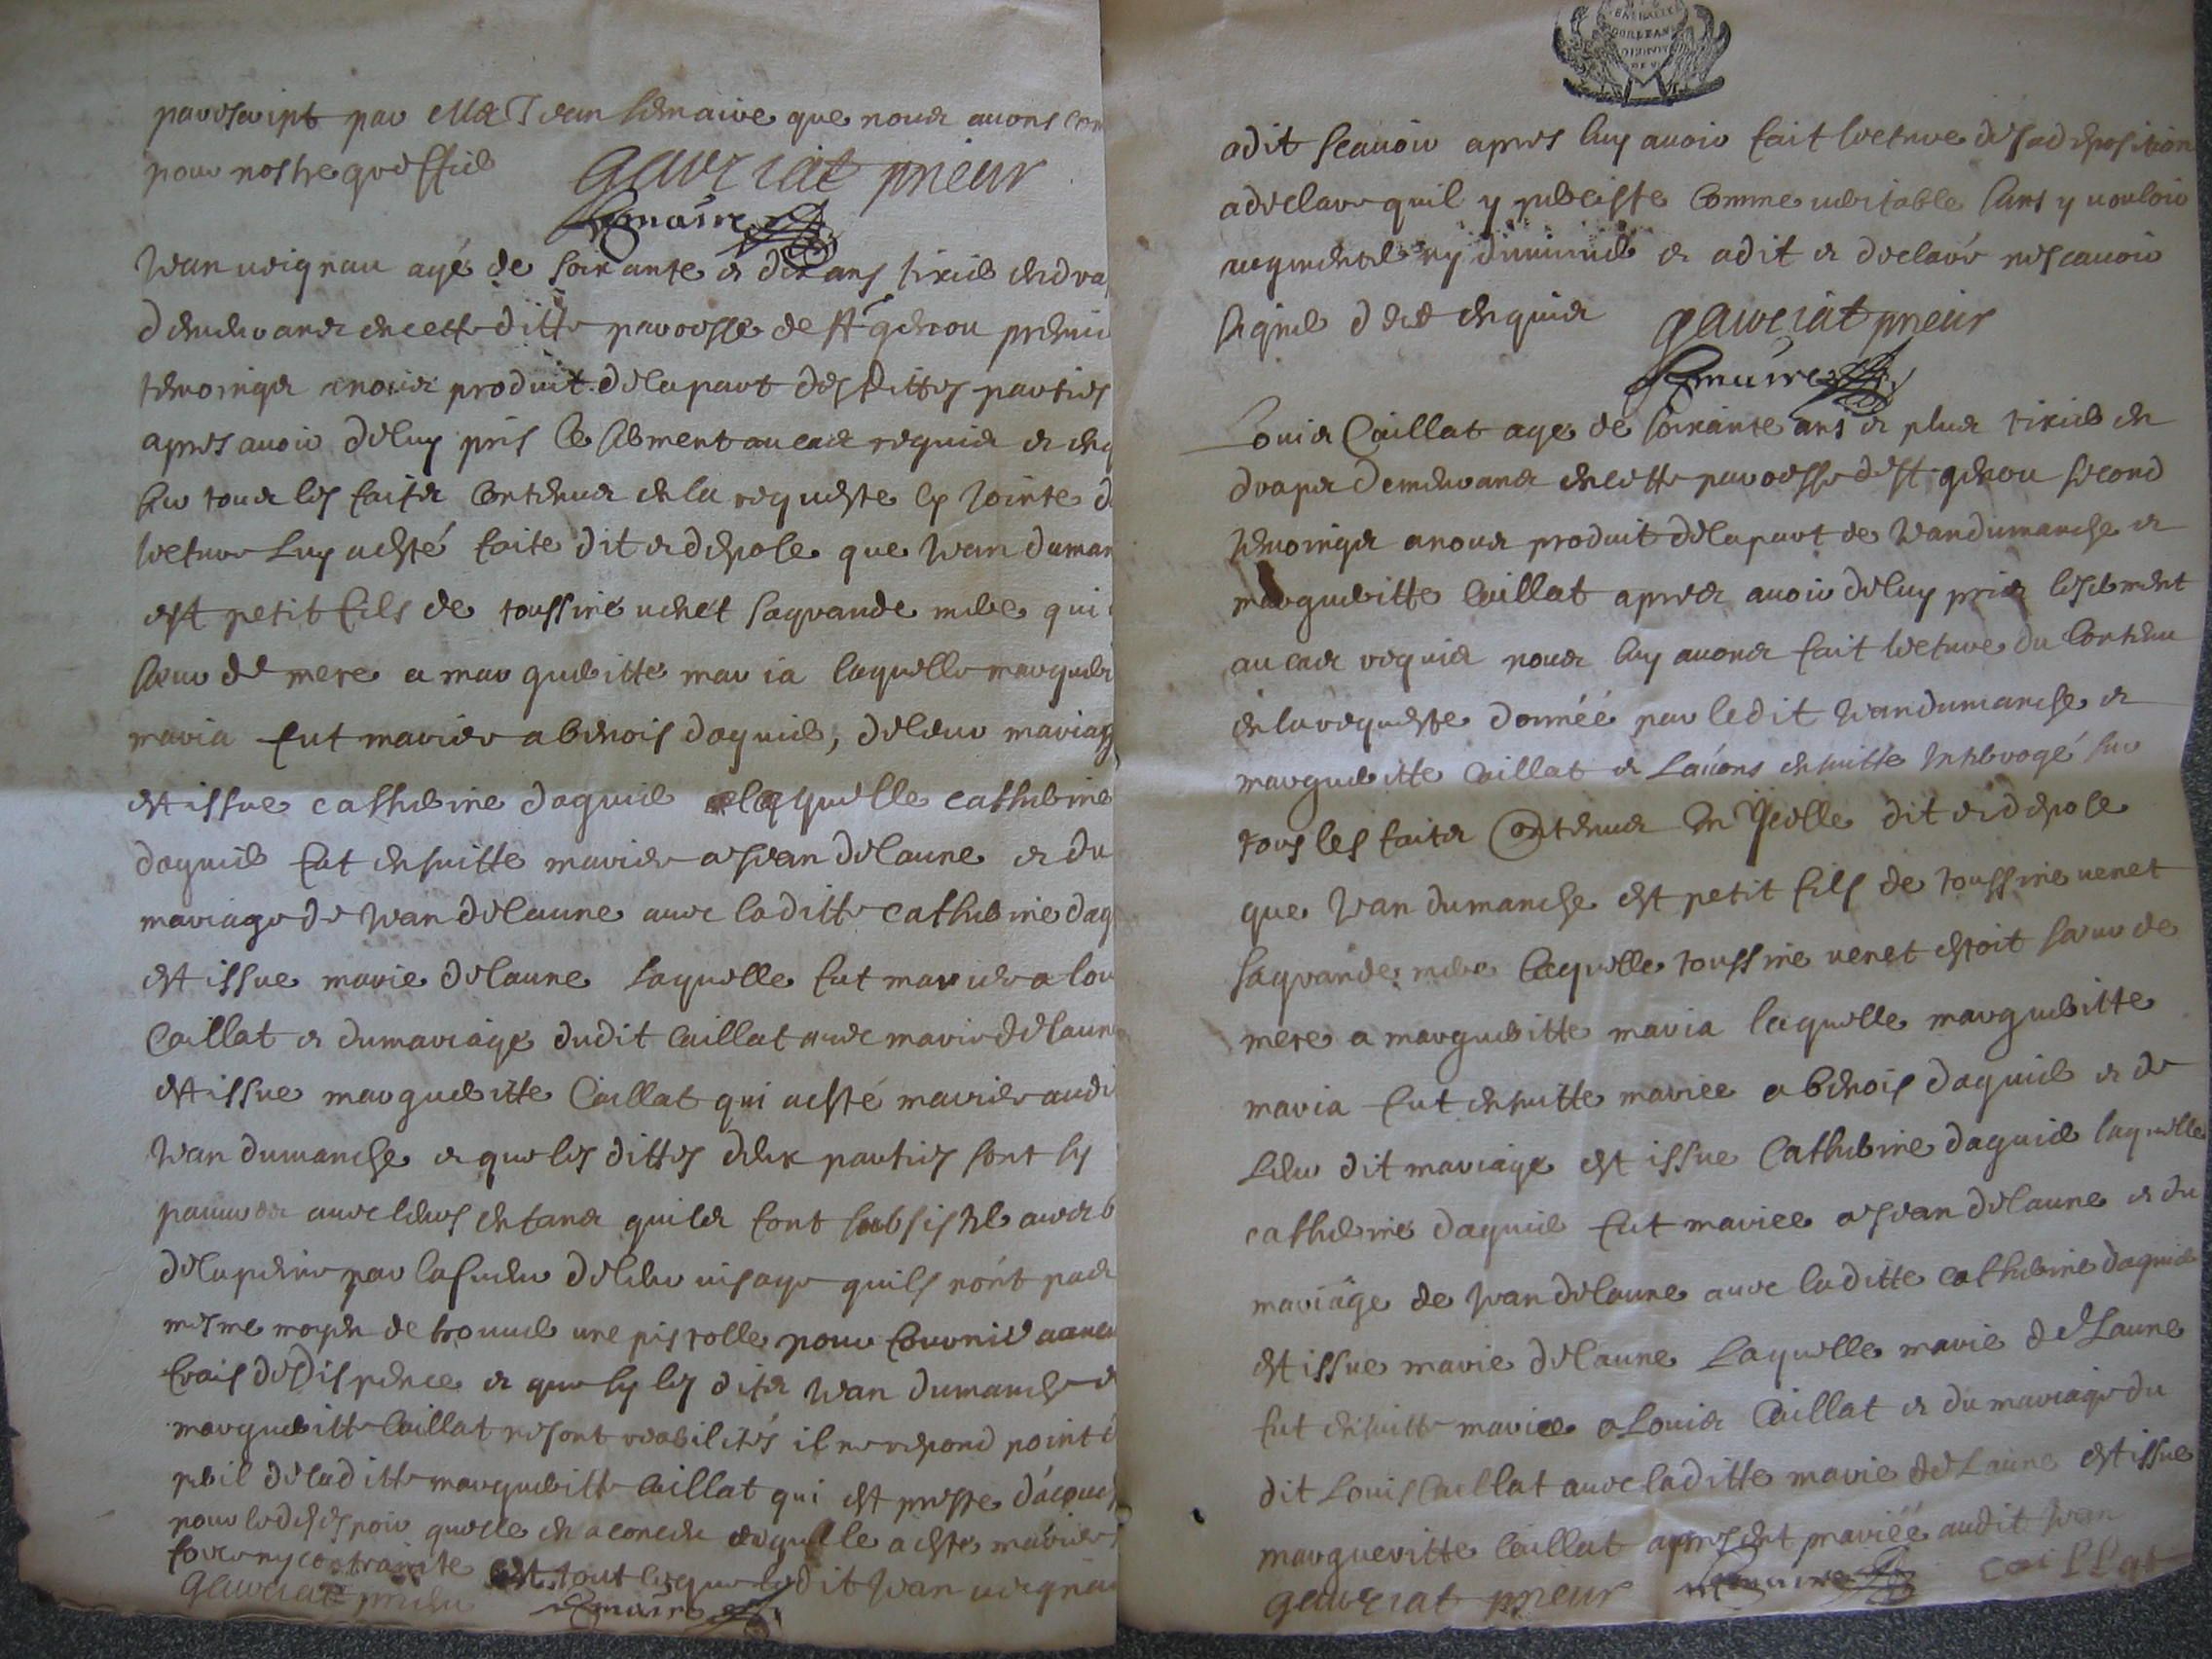 par escript par Me Jean Lemaire que nous avons com
pour nostre greffier gaucciat prieur
Lemaire
Jean veignau agé de soixante et dix ans tixier en dra
demeurans en cette ditte parroisse de st genou premier
temoinga a nous produit de la part des dittes parties
apres avoir de luy pris le serment au cas requis et enq
sur tous les faits contenus en la requeste cy jointe d
lecture luy a esté faite dit et depose que Jean duman
est petit fils de toussine venet sa grande mere qui
sœur de mere a margueritte maria laquelle marguer
maria fut mariee a benois daguier, de leur mariag
est issue catherine daguier laquelle catherine
daguier fut ensuitte mariee a Jean delaune et du
mariage de Jean delaune avec laditte catherine dag
est issue marie delaune laquelle fut mariee a lou
Caillat et du mariage dudit Caillat avec marie delaun
est issue margueritte Caillat qui a esté mariee audi
Jean dumanche et que les dittes deux parties sont sy
pauvres avec leurs enfans quils font subsister avec b
de la peine par la sueur de leur visage quils nónt pas
mesme moyen de trouver une pistolle pour fournir aux
frais de dispence et que sy les dits Jean dumanche et
margueritte Caillat ne sont reabilités il ne repond point d
peril de laditte margueritte Caillat qui est preste dácouch
pour le desespoir quelle en a conceu quelle a esté mariee
force ny contrainte est tout ce que ledit Jean veignau
gaucciat prieur Lemaire
adit scavoir apres luy avoir fait lecture de sa deposition
a declare quil y persiste comme veritable sans y vouloir
augmenter ny diminuer et adit et declaré ne scavoir
signer de ce enquis gaucciat prieur
Lemaire
Louis Caillat agé de soixante ans et plus tixier en
draps demeurans en cette parroisse de st genou second
temoinga a nous produit de la part de Jean dumanche et
margueritte Caillat apres avoir de luy pris le serment
au cas requis nous luy avons fait lecture du contenu
en la requeste donnéé par ledit Jean dumanche et
margueritte Caillat et Lavons ensuitte Interrogé sur
tous les faits Contenus en ycelle dit et depose
que Jean dumanche est petit fils de toussine venet
sa grande mere laquelle toussine venet estoit sœur de
mere a margueritte maria laquelle margueritte
maria fut ensuitte mariee a benois daguier et de
Leur dit mariage est issue Catherine daguier laquelle
catherine daguier fut mariee a Jean delaune et du
mariage de Jean delaune avec laditte catherine daguier
est issue marie delaune Laquelle marie deLaune
fut ensuitte mariee a Louis Caillat et du mariage du
dit Louis Caillat avec laditte marie deLaune est issue
margueritte Caillat apresent mariéé audit Jean
gaucciat prieur Lemaire caillat